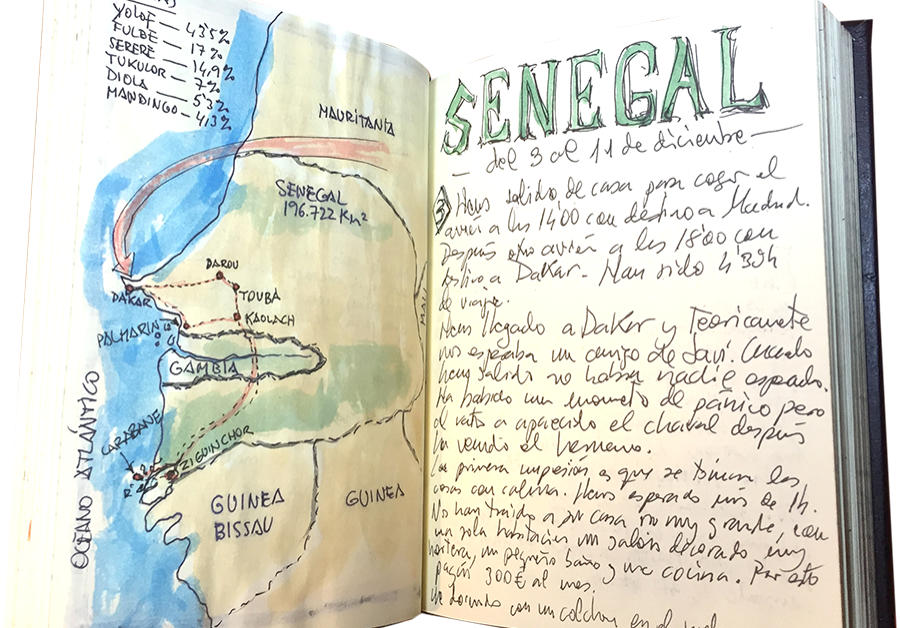 YOLOF — 43'5%
FULBE — 17%
SERERE — 14,9%
TUKULOR — 7%
DIOLA — 5'3%
MANDINGO — 4,13%
MAURITANIA
SENEGAL
196.722 Km²
MALI
DAROU
TOUBA
DAKAR
KAOLACH
PALMARIN
GAMBIA
OCÉANO ATLÁNTICO
CARABANE
ZIGUINCHOR
GUINEA
BISSAU
GUINEA
SENEGAL
— del 3 al 11 de diciembre —
3 Hems salido de casa para coger el
avión a las 14'00 con destino a Madrid.
Después otro avión a las 18'00 con
destino a Dakar. Han sido 4'30h
de viaje.
Hems llegado a Dakar y Teoricamente
nos esperaba un amigo de Javi. Cuando
hems salido no había nadie esperado.
Ha habido un momento de pánico pero
al rato a aparecido el chaval después
ha venido el hermano.
La primera impresión es que se toman las
cosas con calma. Hems esperado más de 1h.
Nos han traído a su casa no muy grande, con
una sola habitación un salón decorado muy
hortera, un pequeño baño y una cocina. Por esto
pagan 300€ al mes.
con un colchón en el